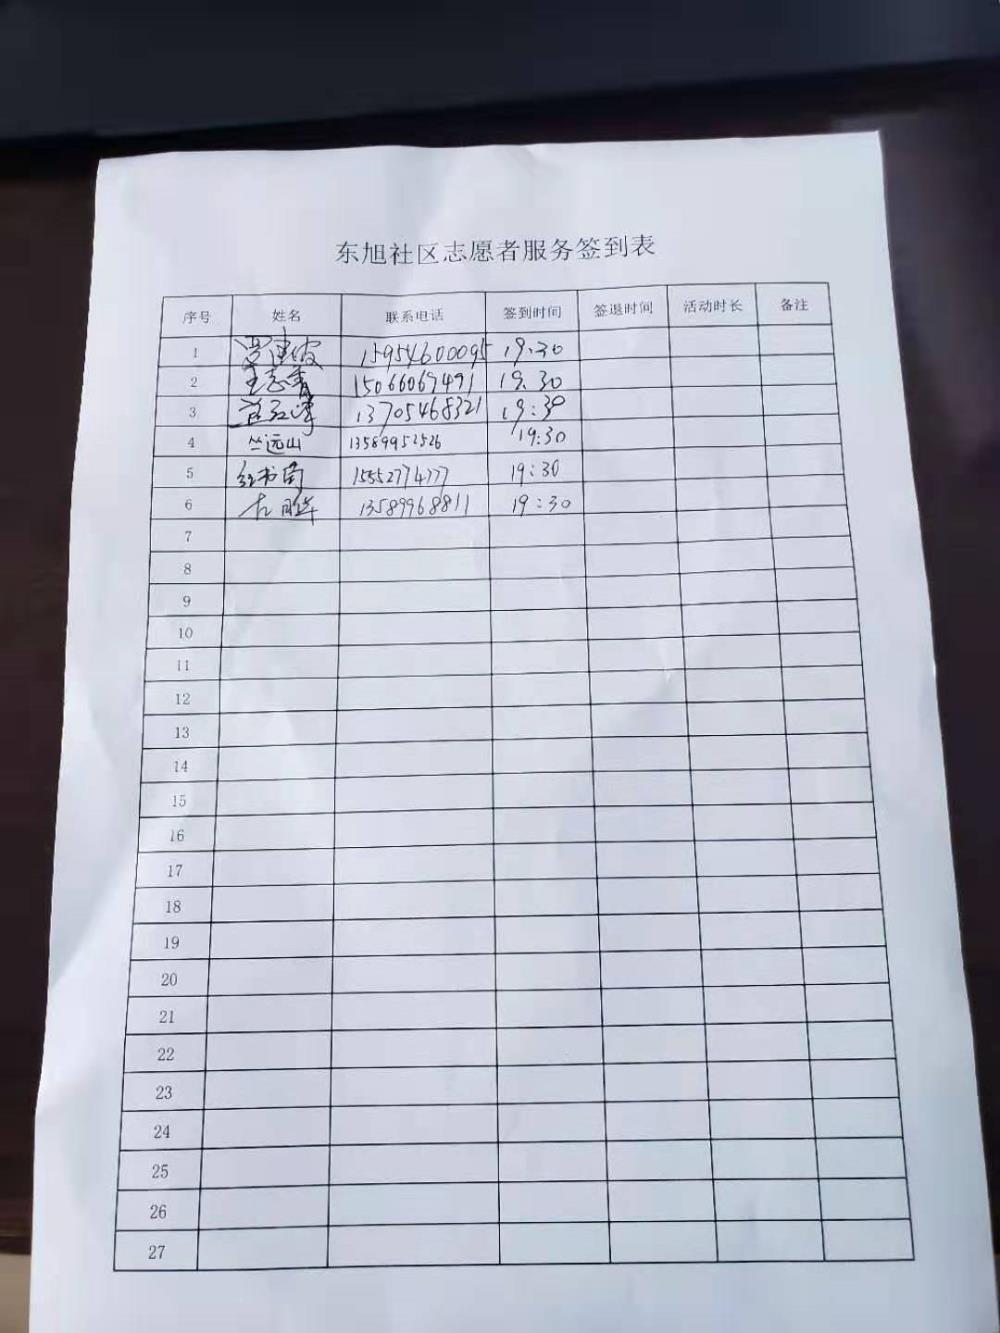 东旭社区志愿者服务签到表
序号 姓名 联系电话 签到时间 签退时间 活动时长 备注
1 15954600095 19:30
2 王志青 15066069491 19:30
3 13705468321 19:30
4 丛远山 13589952526 19:30
5 15552774777 19:30
6 13589968811 19:30
7
8
9
10
11
12
13
14
15
16
17
18
19
20
21
22
23
24
25
26
27